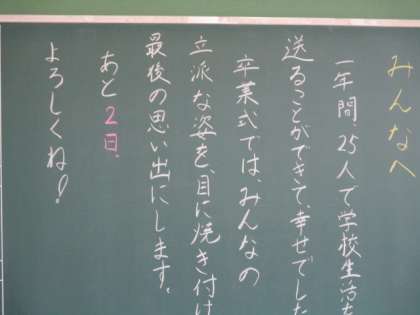 みんなへ
一年間25人で学校生活を
送ることができて、幸せでした
卒業式では、みんなの
立派な姿を、目に焼き付け
最後の思い出にします。
あと2日、
よろしくね!